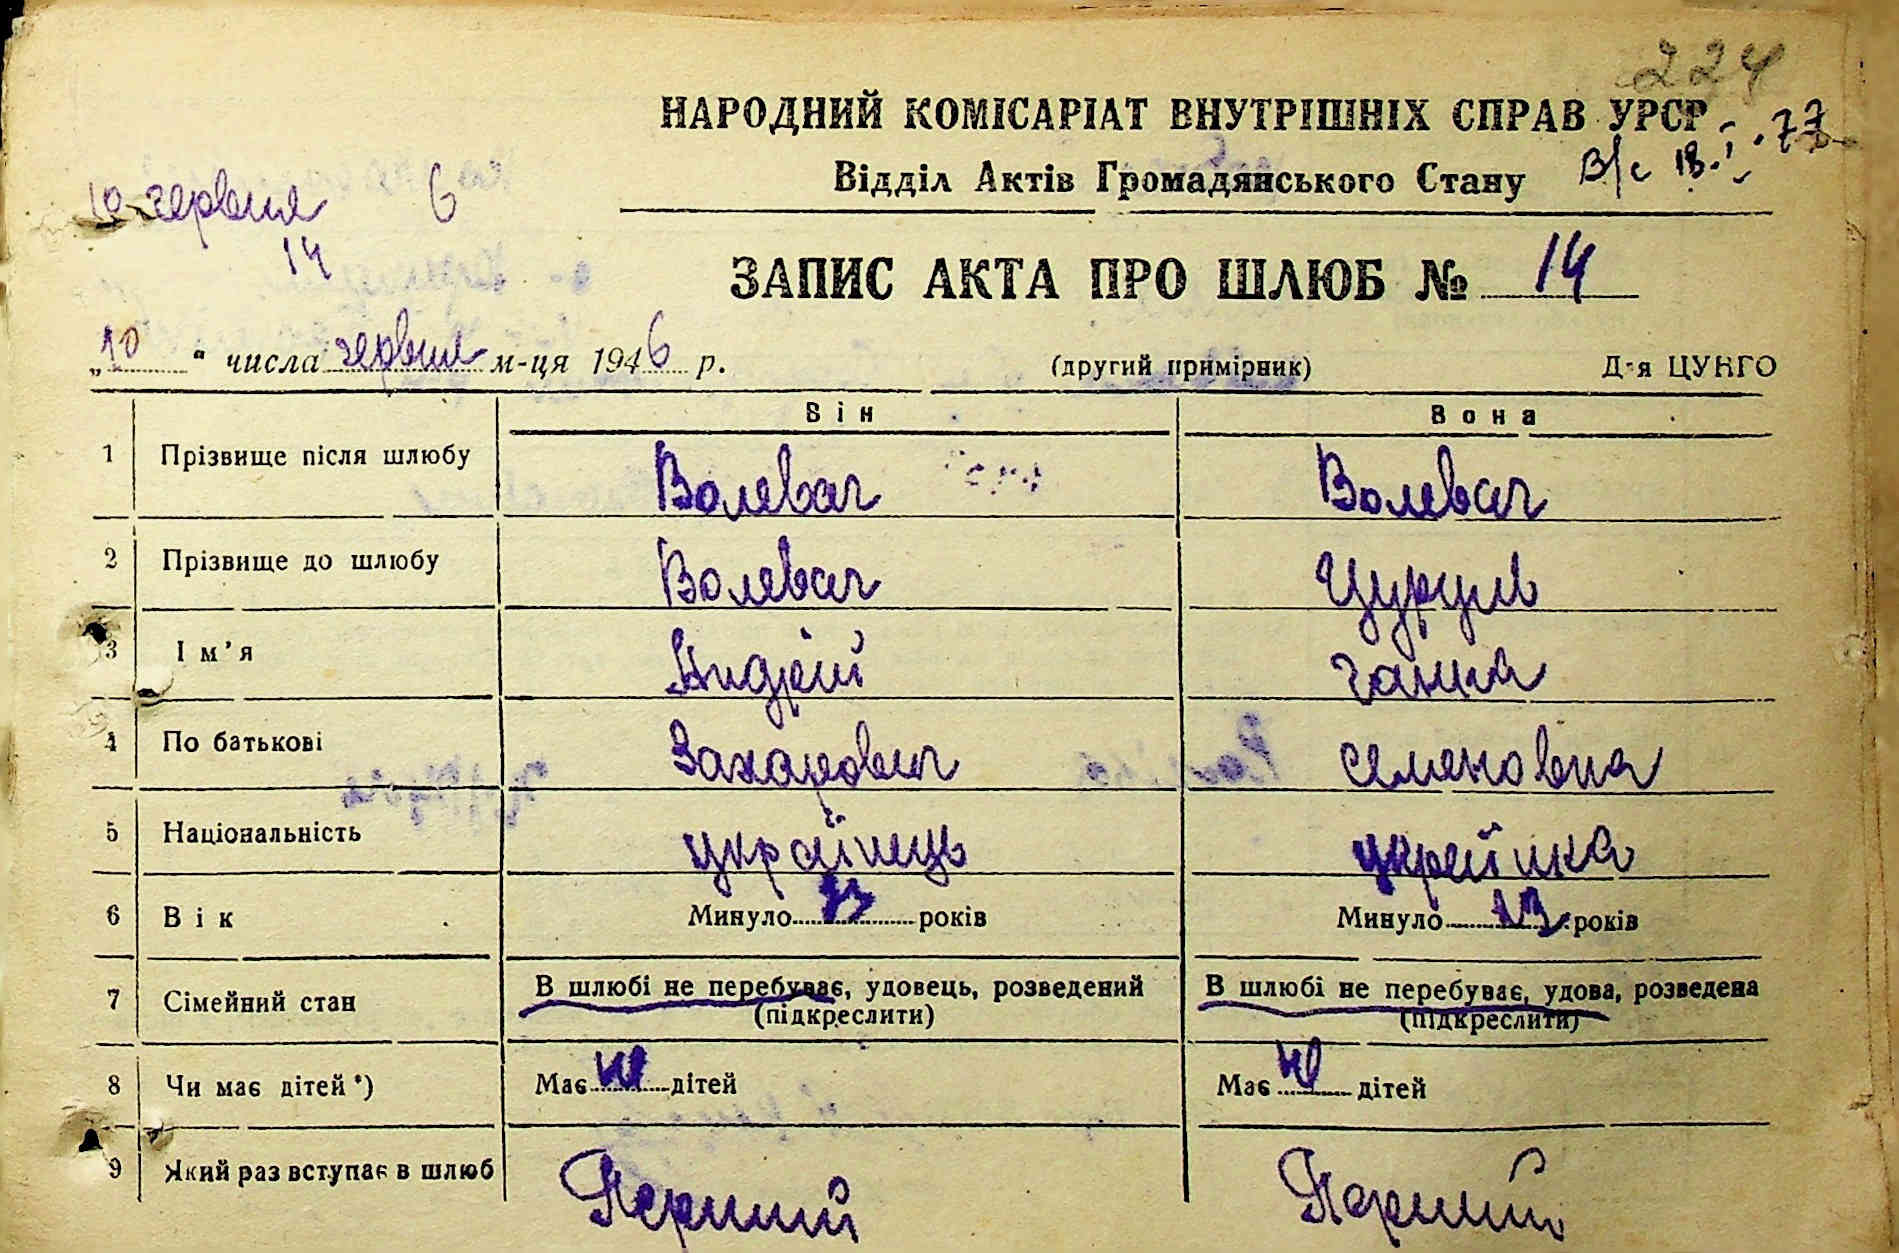 224
НАРОДНИЙ КОМІСАРІАТ ВНУТРІШНІХ СПРАВ УРСР
Відділ Актів Громадянського Стану
В/с 18.I.77
10 червня 6
14
ЗАПИС АКТА ПРО ШЛЮБ № 14
„10“ числа червня м-ця 1946 р. (другий примірник) Д-я ЦУНГО
Він Вона
1 Прізвище після шлюбу Волевач Волевач
2 Прізвище до шлюбу Волевач Цуруль
3 Ім’я Андрій Ганна
4 По батькові Захарович Семеновна
5 Національність українець українка
6 Вік Минуло років Минуло 23 років
7 Сімейний стан В шлюбі не перебуває, удовець, розведений В шлюбі не перебуває, удова, розведена
(підкреслити) (підкреслити)
8 Чи має дітей*) Має не дітей Має не дітей
9 Який раз вступає в шлюб Перший Перший